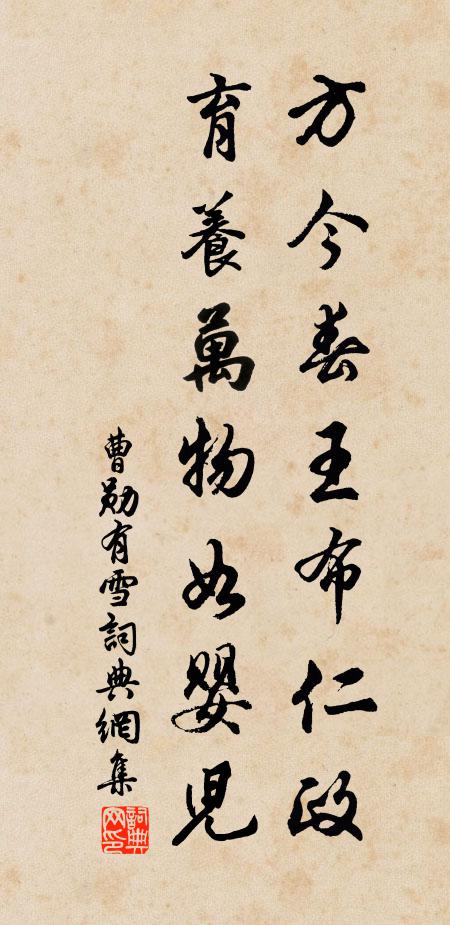 方今春王布仁政
育養萬物如嬰兒
曹勛有雪詞典網集
詞典网印